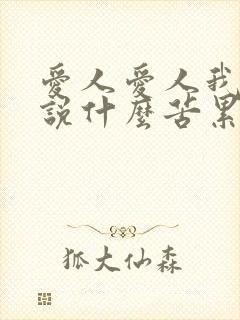 愛人愛人我
說什麼苦累
狐大仙森